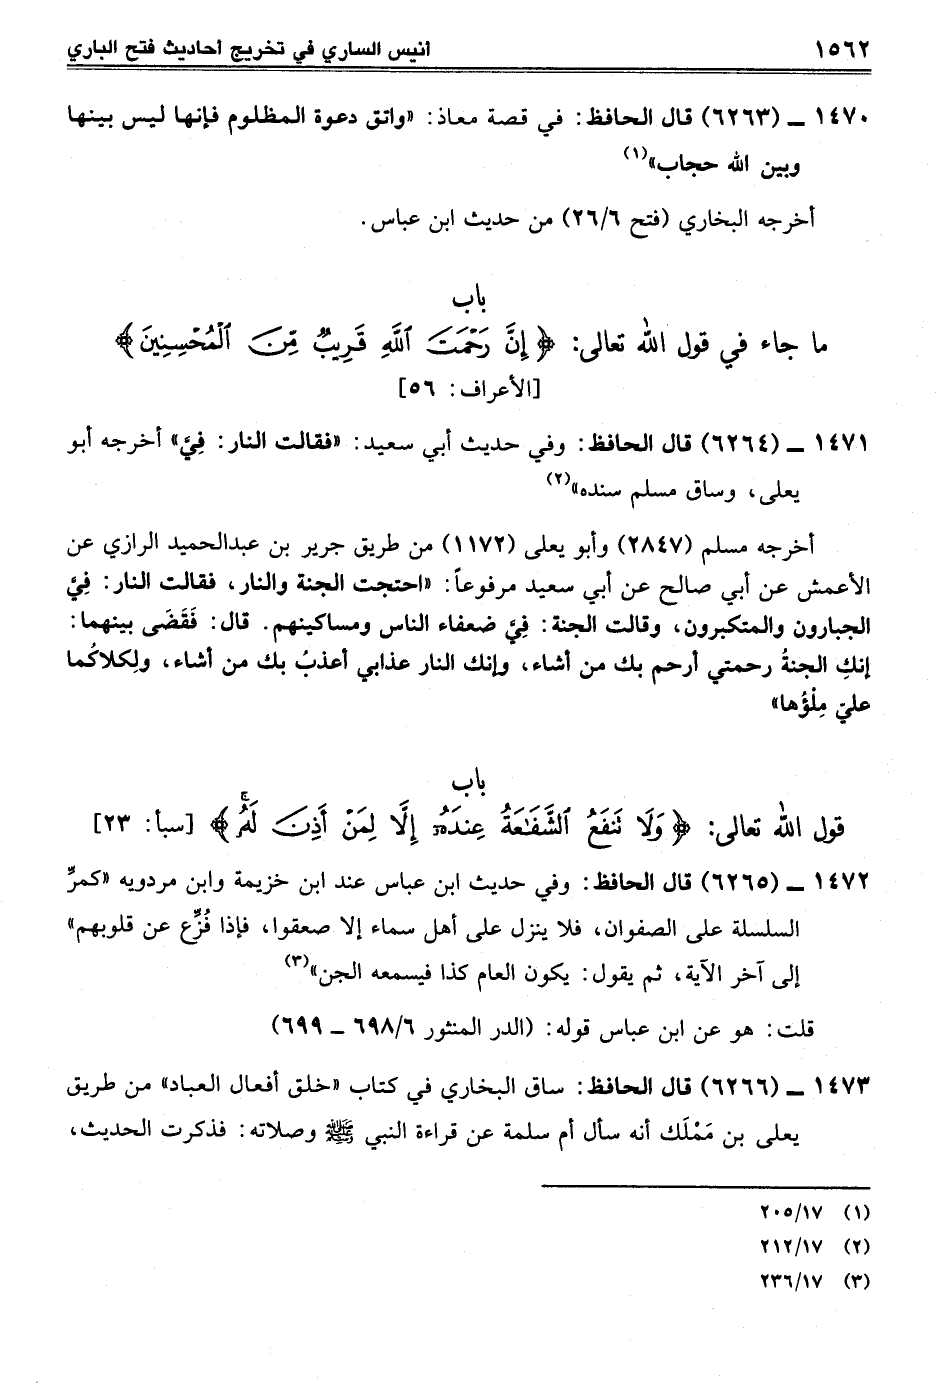 ١٥٦٢ أنيس الساري في تخريج أحاديث فتح الباري
١٤٧٠ ـ (٦٢٦٣) قال الحافظ: في قصة معاذ: «واتق دعوة المظلوم فإنها ليس بينها
وبين الله حجاب»(١)
أخرجه البخاري (فتح ٢٦/٦) من حديث ابن عباس.
باب
ما جاء في قول الله تعالى: ﴿إِنَّ رَحْمَتَ ٱللَّهِ قَرِيبٌ مِّنَ ٱلْمُحْسِنِينَ﴾
[الأعراف: ٥٦]
١٤٧١ ـ (٦٢٦٤) قال الحافظ: وفي حديث أبي سعيد: «فقالت النار: فِيَّ» أخرجه أبو
يعلى، وساق مسلم سنده»(٢)
أخرجه مسلم (٢٨٤٧) وأبو يعلى (١١٧٢) من طريق جرير بن عبدالحميد الرازي عن
الأعمش عن أبي صالح عن أبي سعيد مرفوعاً: «احتجت الجنة والنار، فقالت النار: فِيَّ
الجبارون والمتكبرون، وقالت الجنة: فِيَّ ضعفاء الناس ومساكينهم. قال: فَقَضَى بينهما:
إنكِ الجنةُ رحمتي أرحم بك من أشاء، وإنك النار عذابي أعذبُ بك من أشاء، ولِكلاكُما
عليّ مِلْؤُها»
باب
قول الله تعالى: ﴿وَلَا تَنفَعُ ٱلشَّفَـٰعَةُ عِندَهُۥٓ إِلَّا لِمَنْ أَذِنَ لَهُۥۚ﴾ [سبأ: ٢٣]
١٤٧٢ ـ (٦٢٦٥) قال الحافظ: وفي حديث ابن عباس عند ابن خزيمة وابن مردويه «كمرِّ
السلسلة على الصفوان، فلا ينزل على أهل سماء إلا صعقوا، فإذا فُزِّع عن قلوبهم»
إلى آخر الآية، ثم يقول: يكون العام كذا فيسمعه الجن»(٣)
قلت: هو عن ابن عباس قوله: (الدر المنثور ٦٩٨/٦ ـ ٦٩٩)
١٤٧٣ ـ (٦٢٦٦) قال الحافظ: ساق البخاري في كتاب «خلق أفعال العباد» من طريق
يعلى بن مَمْلَك أنه سأل أم سلمة عن قراءة النبي ﷺ وصلاته: فذكرت الحديث،
(١) ٢٠٥/١٧
(٢) ٢١٢/١٧
(٣) ٢٣٦/١٧